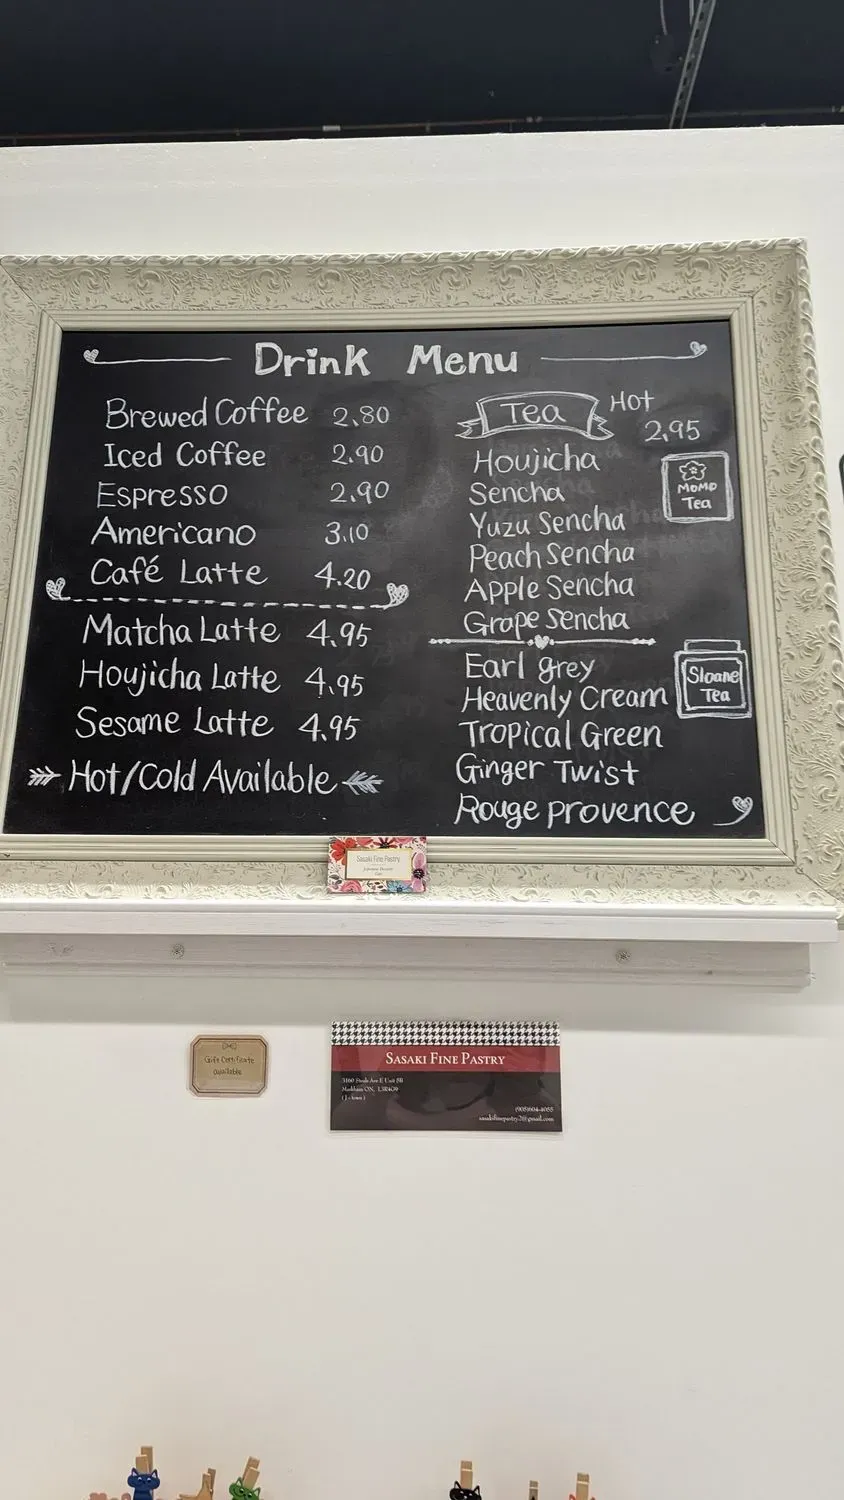 Drink Menu
Brewed Coffee 2.80
Iced Coffee 2.90
Espresso 2.90
Americano 3.10
Café Latte 4.20
Matcha Latte 4.95
Houjicha Latte 4.95
Sesame Latte 4.95
Hot/Cold Available
Tea Hot
2.95
Houjicha
Sencha
Yuzu Sencha
Peach Sencha
Apple Sencha
Grape Sencha
MOMO
Tea
Earl grey
Heavenly Cream
Tropical Green
Ginger Twist
Rouge provence
Sloane
Tea
Sasaki Fine Pastry
Gift Certificate
available
SASAKI FINE PASTRY
Markham ON,
(J-town)
(905)604-4055